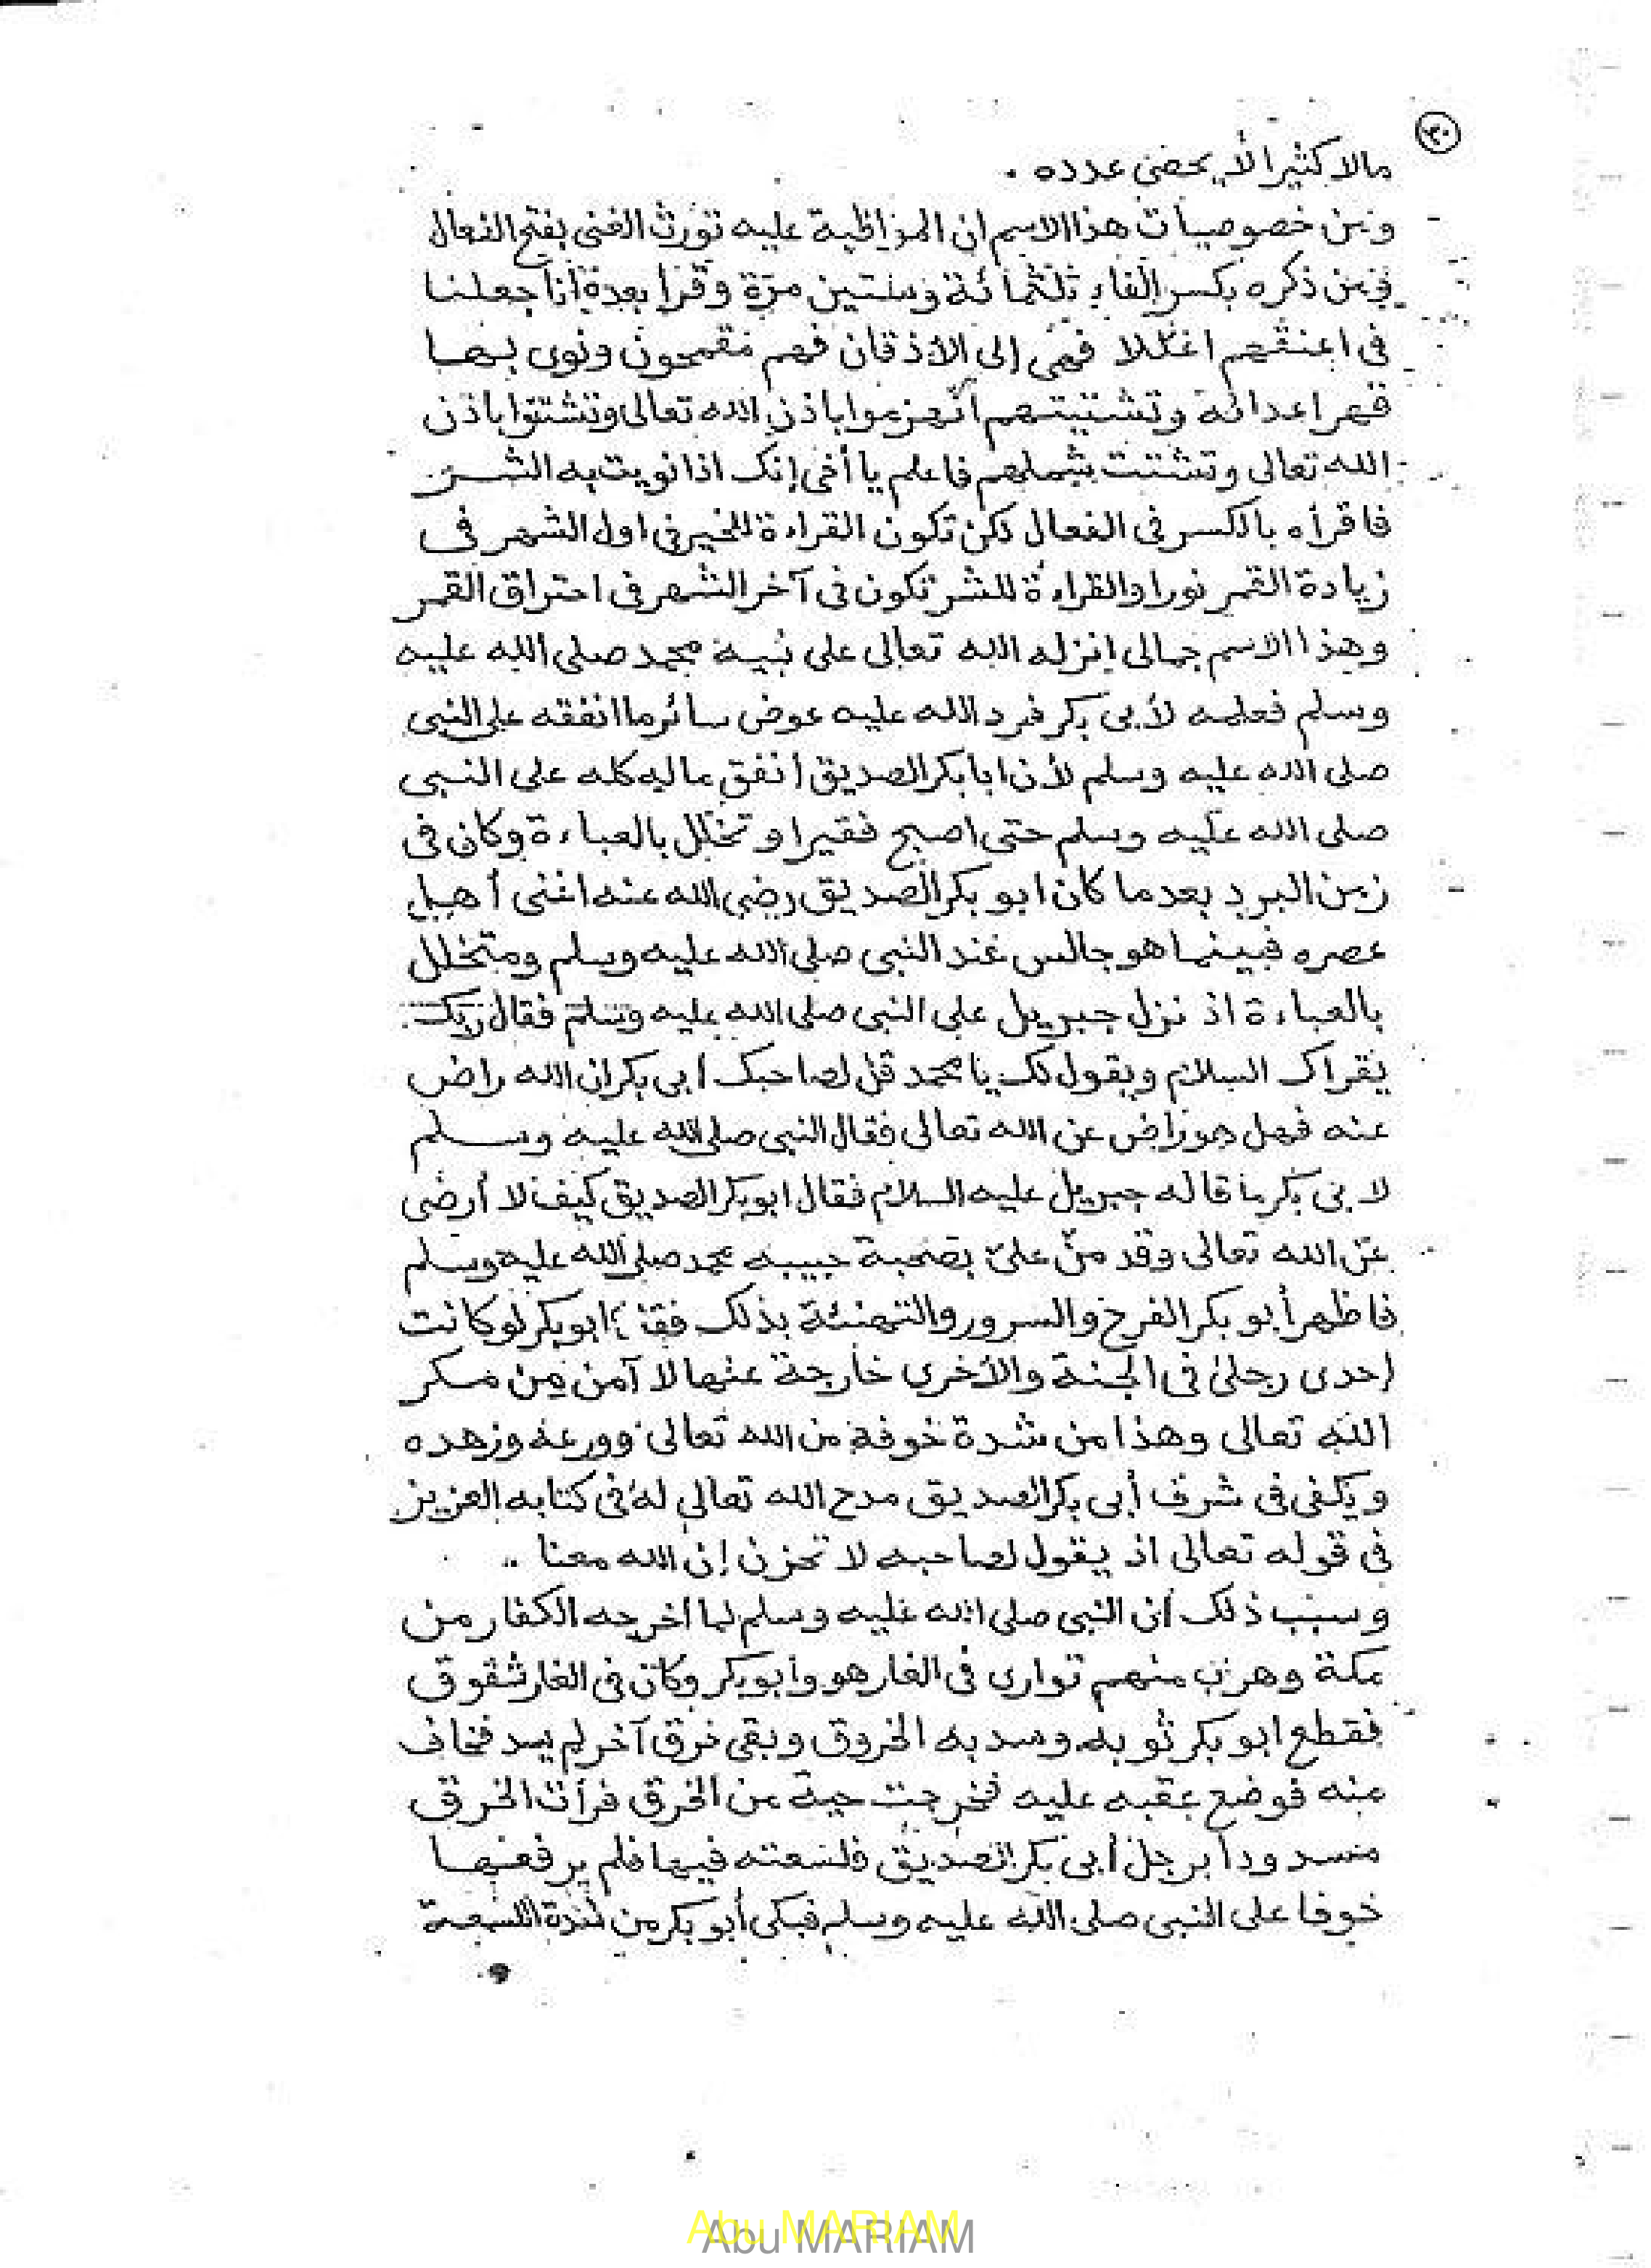 ٣٠
مالا كثيرا لا يحصى عدده .
ومن خصوصيات هذا الاسم ان المواظبة عليه تورث الغنى بفتح الفعال
ومن ذكره بكسر الفاء ثلثمائة وستين مرّة وقرا بعدة انا جعلنا
فى اعنقهم اغللا فهى إلى الاذقان فهم مقمحون ونوى بها
قهر اعدائه وتشتيتهم انهزموا باذن الله تعالى وتشتتوا باذن
الله تعالى وتشتت بشملهم فاعلم يا أخى إنك اذا نويت به الشر
فاقرأه بالكسر فى الفعال لكن تكون القراءة للخير فى اول الشهر فى
زيادة القمر نورا والقراءة للشر تكون فى آخر الشهر فى احتراق القمر
وهذا الاسم جمالى انزله الله تعالى على نبيه محمد صلى الله عليه
وسلم فعلمه لأبى بكر فرد الله عليه عوض سائر ما انفقه على النبى
صلى الله عليه وسلم لأن ابا بكر الصديق أنفق ماله كله على النبى
صلى الله عليه وسلم حتى اصبح فقيرا وتخلل بالعباءة وكان فى
زمن البرد بعدما كان ابو بكر الصديق رضى الله عنه اغنى أهل
عصره فبينما هو جالس عند النبى صلى الله عليه وسلم ومتخلل
بالعباءة اذ نزل جبريل على النبى صلى الله عليه وسلم فقال ربك
يقراك السلام ويقول لك يا محمد قل لصاحبك ابى بكر ان الله راض
عنه فهل هو راض عن الله تعالى فقال النبى صلى الله عليه وسلم
لابى بكر ما قاله جبريل عليه السلام فقال ابو بكر الصديق كيف لا أرضى
عن الله تعالى وقد منّ علىّ بصحبة حبيبه محمد صلى الله عليه وسلم
فاظهر أبو بكر الفرح والسرور والتهنئة بذلك ابو بكر لو كانت
إحدى رجلىّ فى الجنة والأخرى خارجة عنها لا آمن من مكر
الله تعالى وهذا من شدة خوفه من الله تعالى وورعه وزهده
ويكفى فى شرف أبى بكر الصديق مدح الله تعالى له فى كتابه العزيز
فى قوله تعالى اذ يقول لصاحبه لا تحزن إن الله معنا ..
وسبب ذلك أن النبى صلى الله عليه وسلم لما أخرجه الكفار من
مكة وهرب منهم توارى فى الغار هو وأبو بكر وكان فى الغار شقوق
فقطع ابو بكر ثوبه وسد به الخروق وبقى خرق آخر لم يسد فخاف
منه فوضع عقبه عليه فخرجت حية من الخرق فرأت الخرق
مسدودا برجل أبى بكر الصديق فلسعته فيها فلم يرفعها
خوفا على النبى صلى الله عليه وسلم فبكى أبو بكر من شدة اللسعة
و
Abu MARIAM
Abu MARIAM